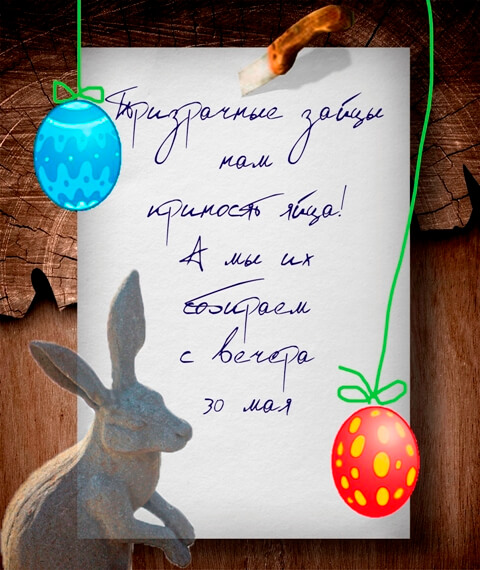 Призрачные зайцы
нам
приносят яйца!
А мы их
собираем
с вечера
30 мая